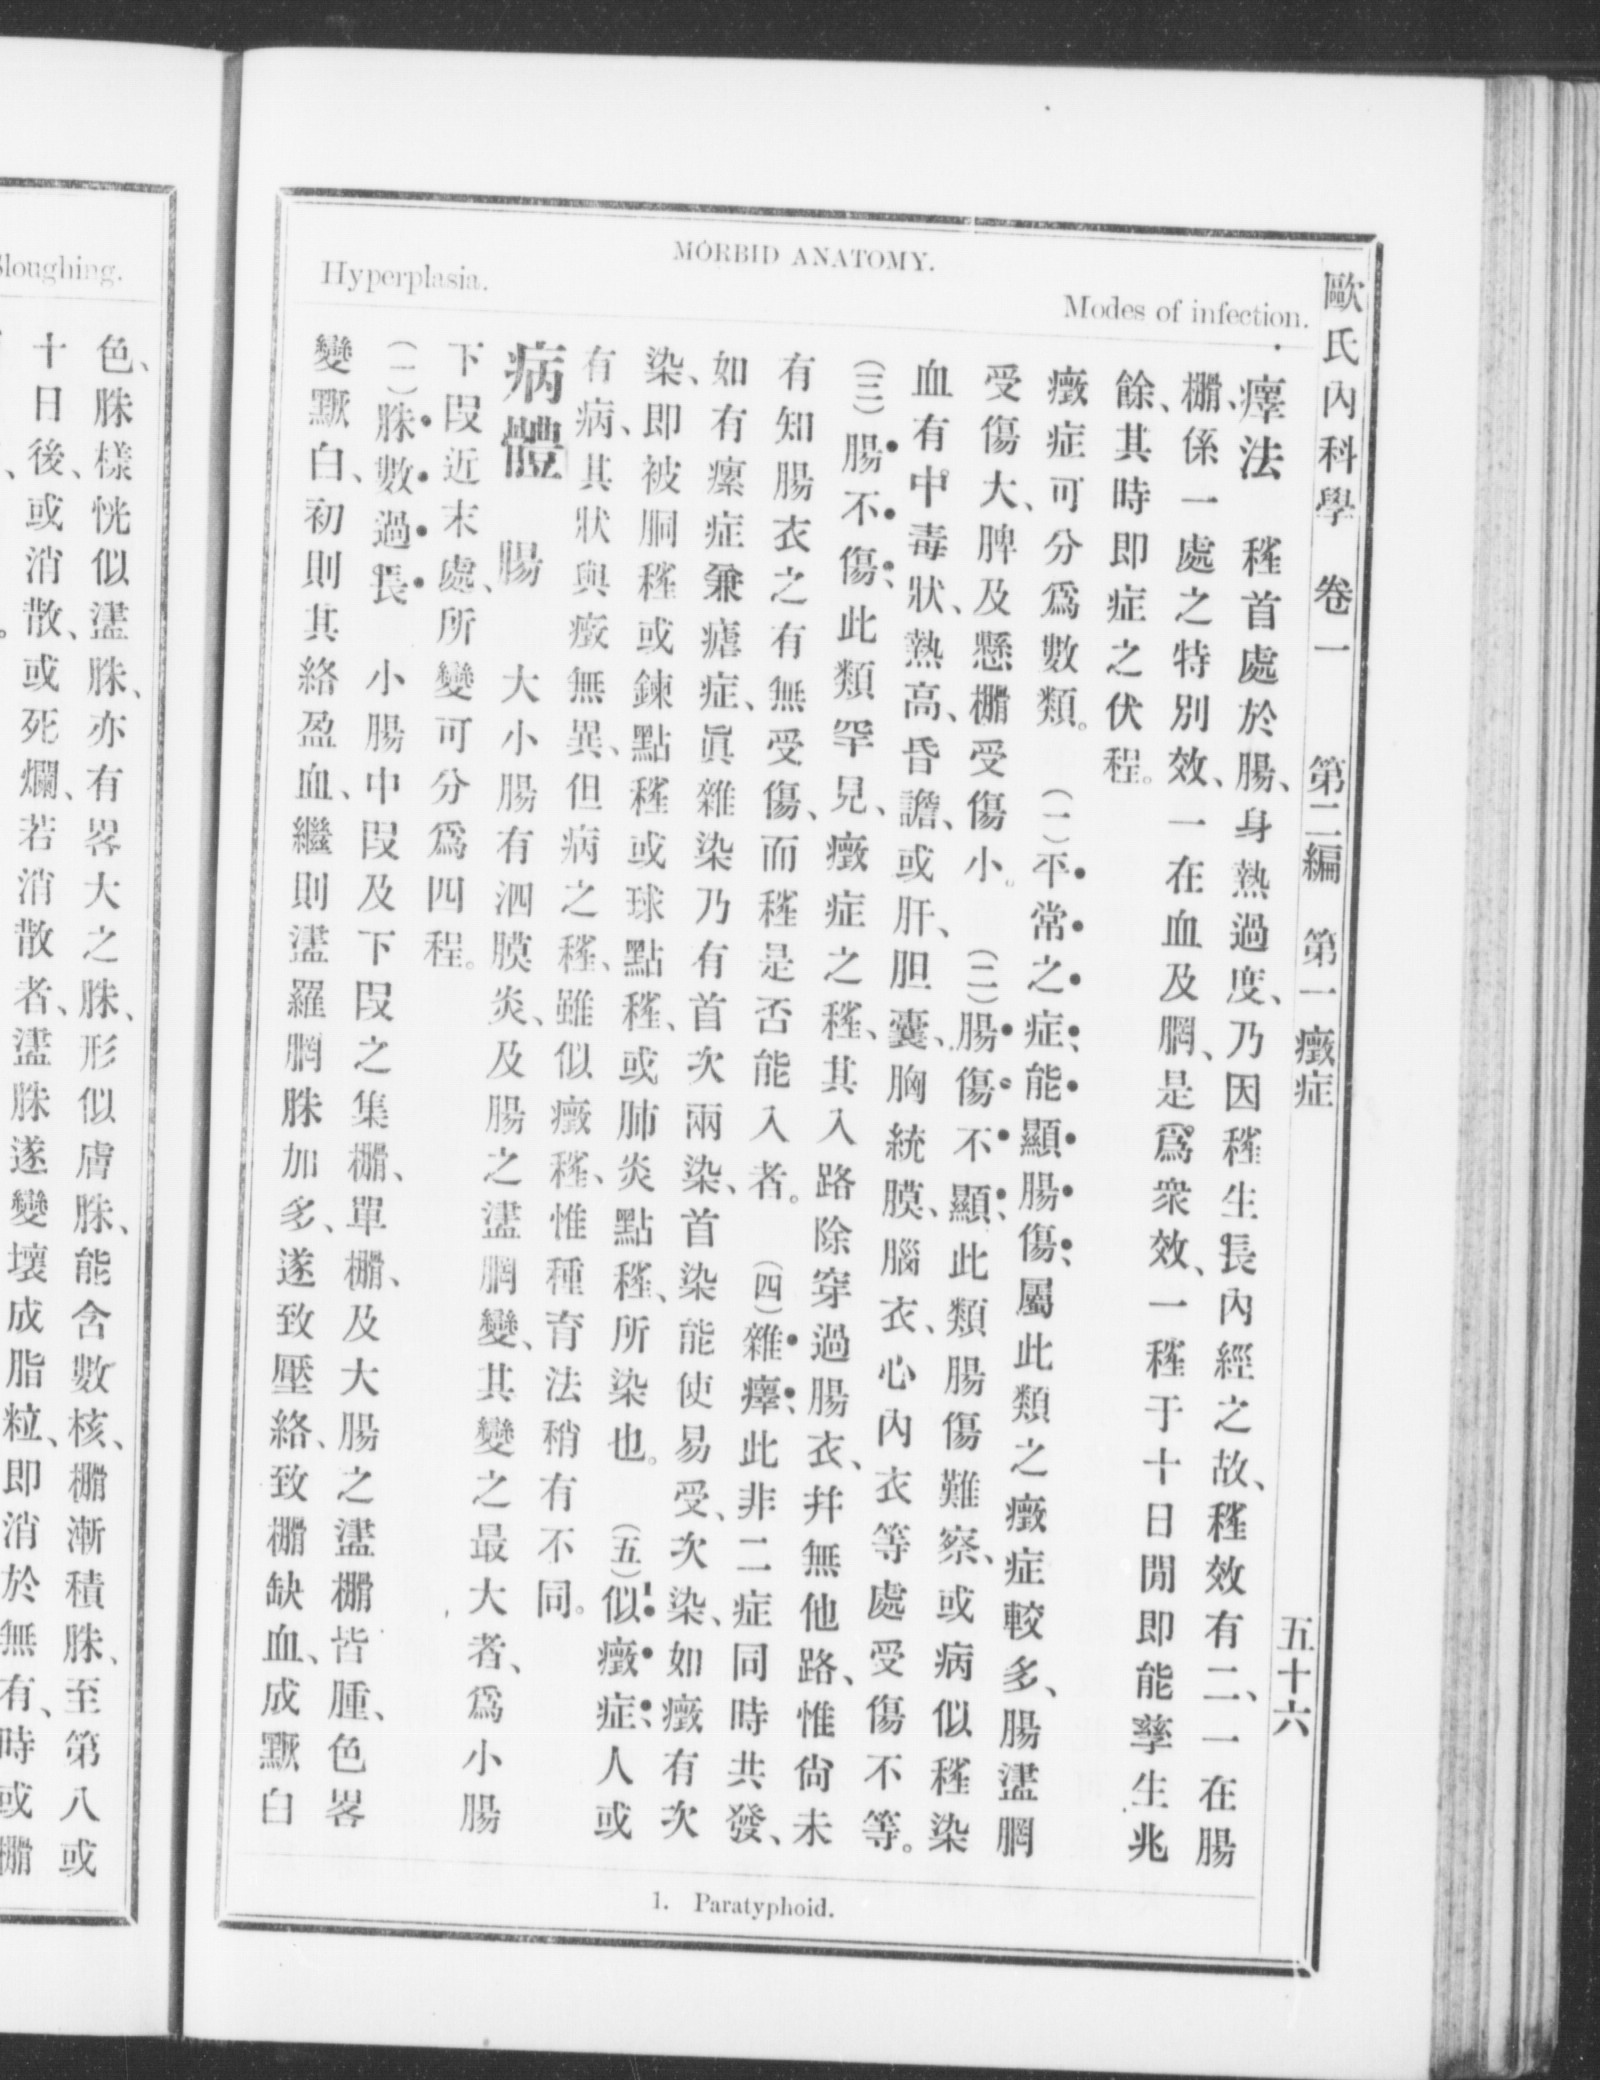 MORBID ANATOMY.
Modes of infection.
Hyperplasia.
歐氏內科學 卷一 第二編 第一 癥症 五十六
癉法 䅏首處於腸、身熱過度、乃因䅏生長內經之故、䅏效有二、一在腸
棚、係一處之特別效、一在血及膶、是爲衆效、一䅏于十日閒即能孳生兆
餘、其時即症之伏程。
癥症可分爲數類。 (一)平常之症、能顯腸傷、屬此類之癥症較多、腸盪膶
受傷大、脾及懸棚受傷小。 (二)腸傷不顯、此類腸傷難察、或病似䅏染
血有中毒狀、熱高、昏譫、或肝、胆囊、胸統膜、腦衣、心內衣等處受傷不等。
(三)腸不傷、此類罕見、癥症之䅏、其入路除穿過腸衣、幷無他路、惟尙未
有知腸衣之有無受傷、而䅏是否能入者。 (四)雜癉、此非二症同時共發、
如有瘰症兼瘧症、眞雜染乃有首次兩染、首染能使易受、次染、如癥有次
染、即被胴䅏或鍊點䅏或球點䅏、或肺炎點䅏、所染也。 (五)似癥症、人或
有病、其狀與癥無異、但病之䅏、雖似癥䅏、惟種育法稍有不同。
病體 腸 大小腸有泗膜炎、及腸之盪膶變、其變之最大者、爲小腸
下段近末處、所變可分爲四程。
(一)脎數過長 小腸中段及下段之集棚、單棚、及大腸之盪棚皆腫、色畧
變黙白、初則其絡盈血、繼則盪羅膶脎加多、遂致壓絡、致棚缺血、成黙白
1. Paratyphoid.
Sloughing.
色、脎樣恍似盪脎、亦有畧大之脎、形似膚脎、能含數核、棚漸積脎、至第八或
十日後、或消散、或死爛、若消散者、盪脎遂變壞成脂粒、即消於無有、時或棚